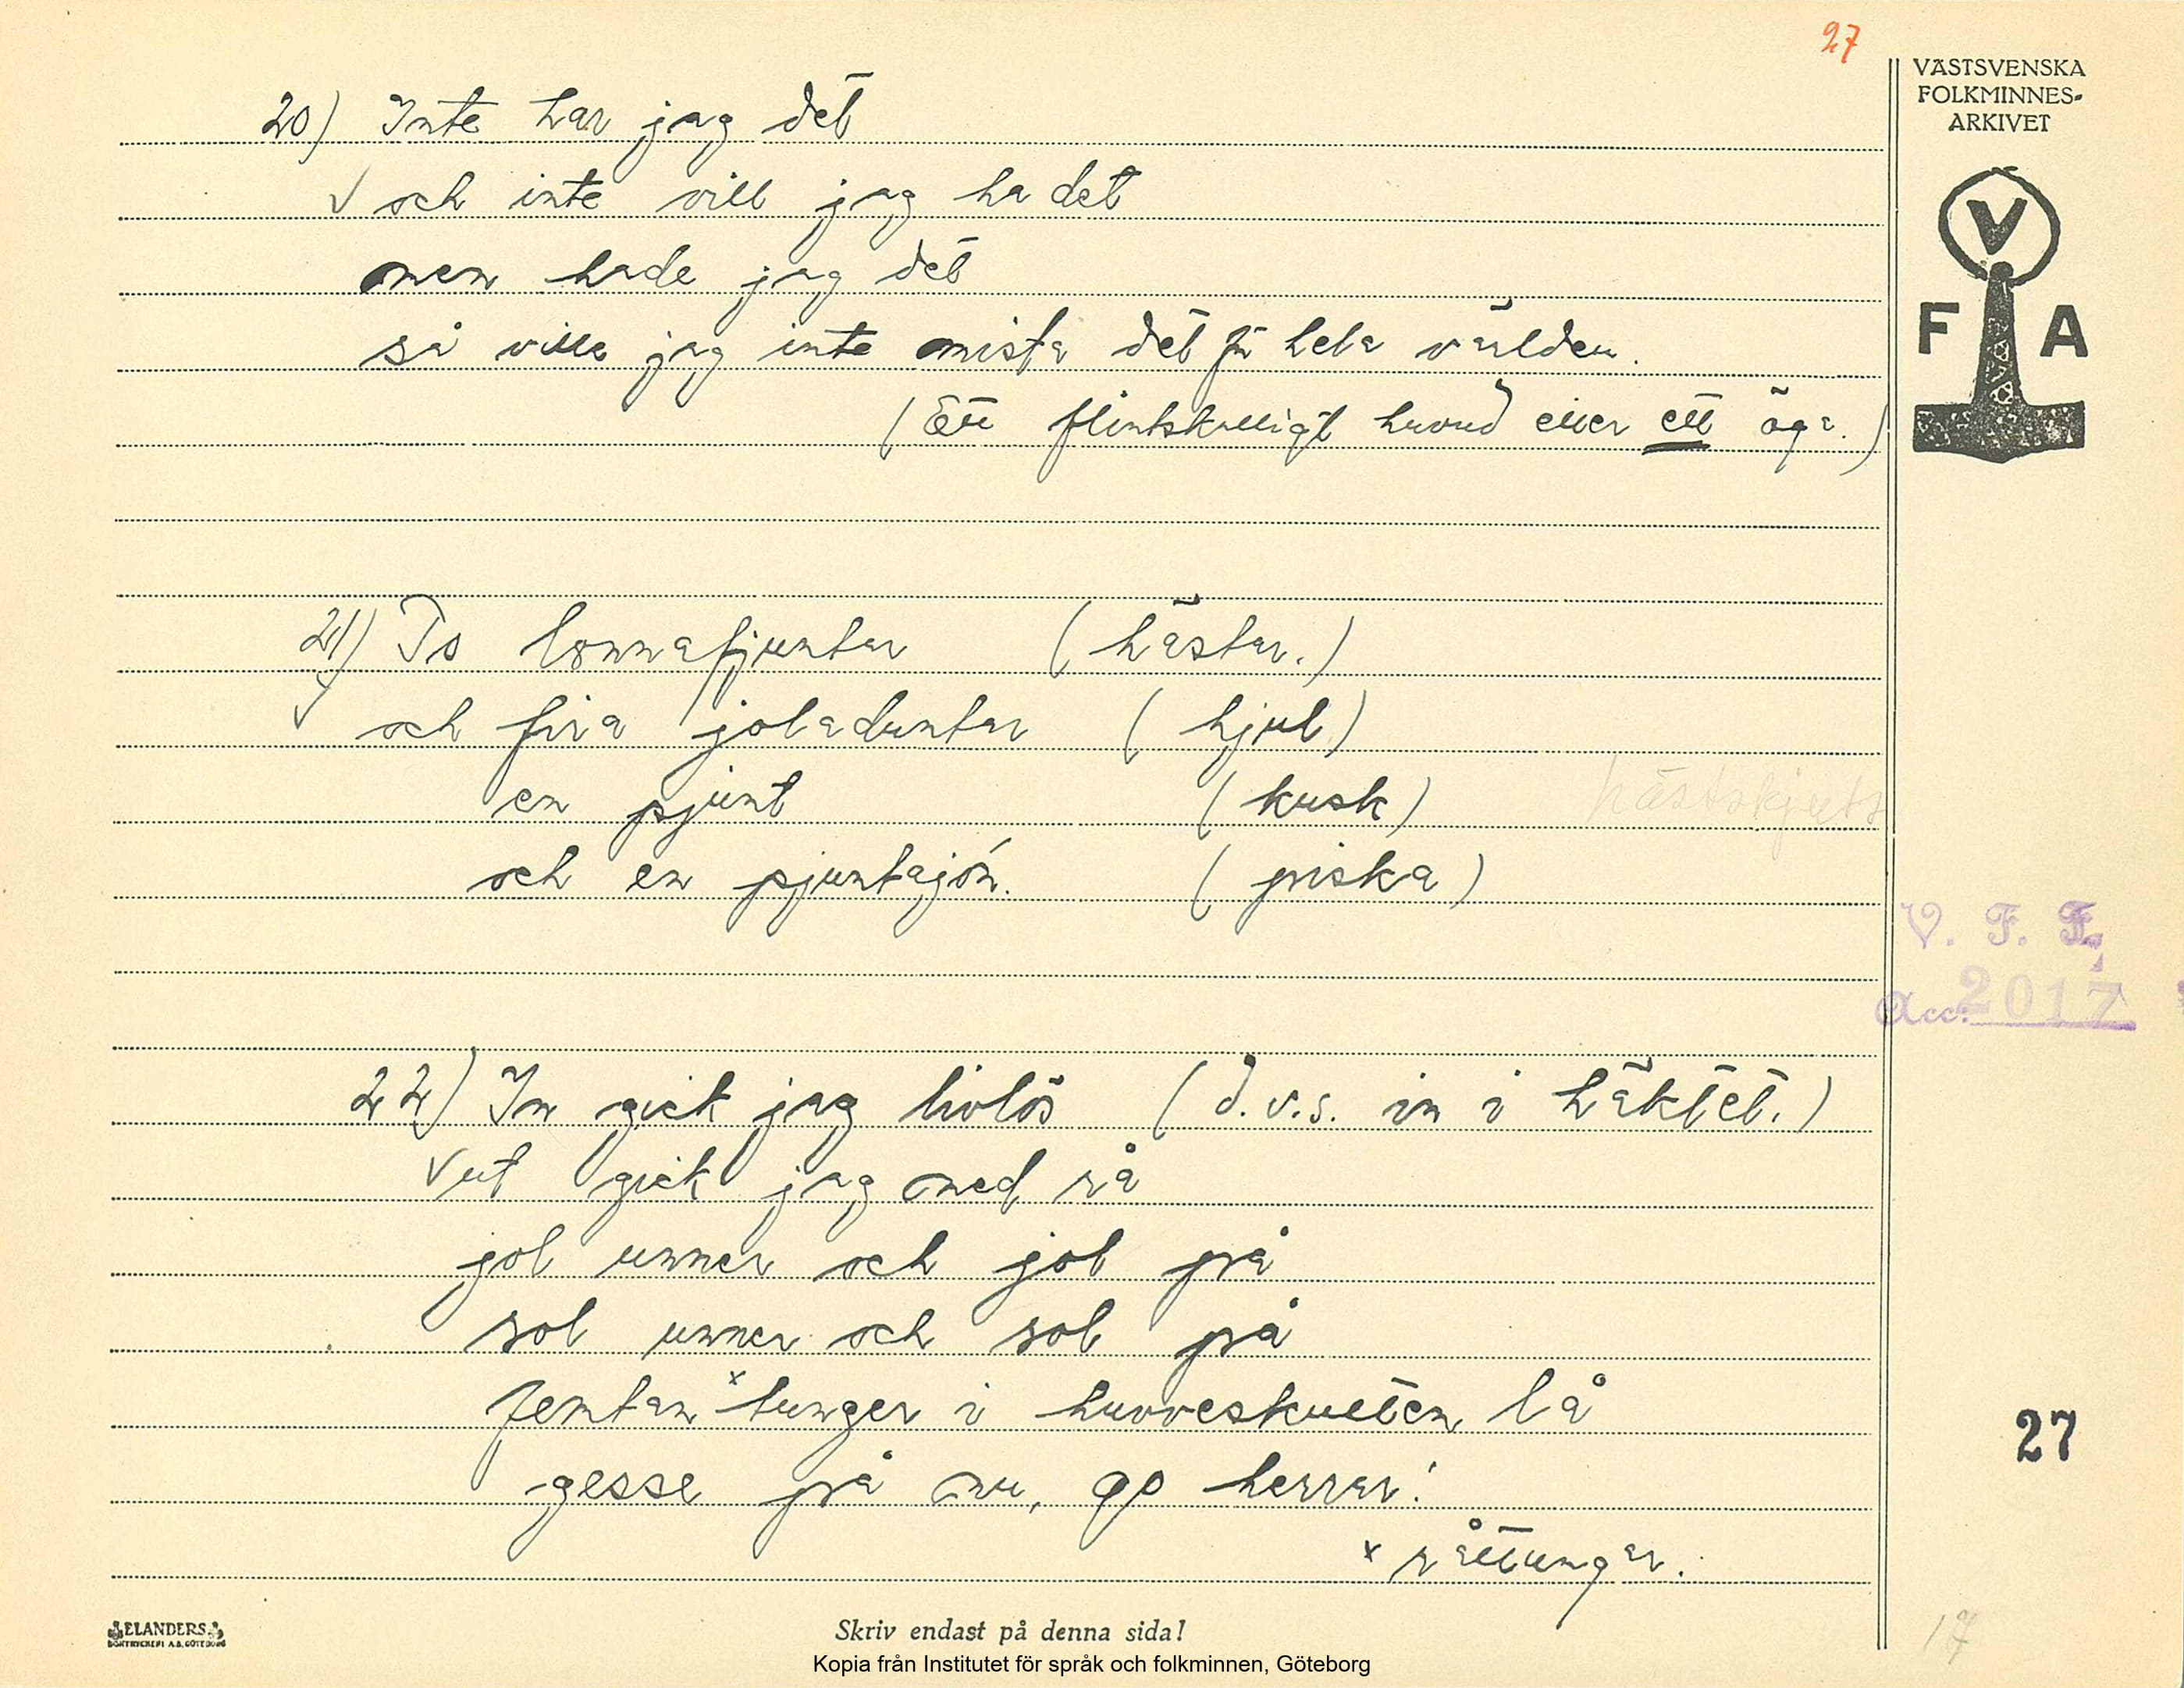 27
VÄSTSVENSKA
FOLKMINNES-
ARKIVET
V
F A
20) Inte har jag det
och inte vill jag ha det
men hade jag det
så ville jag inte mista det för hela världen.
(Ett flintskalligt huvud eller ett öga.)
21) To lonnafjuntar (hästar.)
och fira joladuntar (hjul)
en pjunt (kusk)
hästskjuts
och en pjuntajón. (piska)
V. F. F.
Acc. 2017
22) In gick jag livlös (d.v.s. in i häktet.)
ut gick jag med rå
jol unner och jol på
sol unner och sol på
femtan x tunger i huvveskulten lå
gesse på nu, go herrar!
x råttungar.
27
17
ELANDERS
BOKTRYCKERI A.B. GÖTEBORG
Skriv endast på denna sida!
Kopia från Institutet för språk och folkminnen, Göteborg